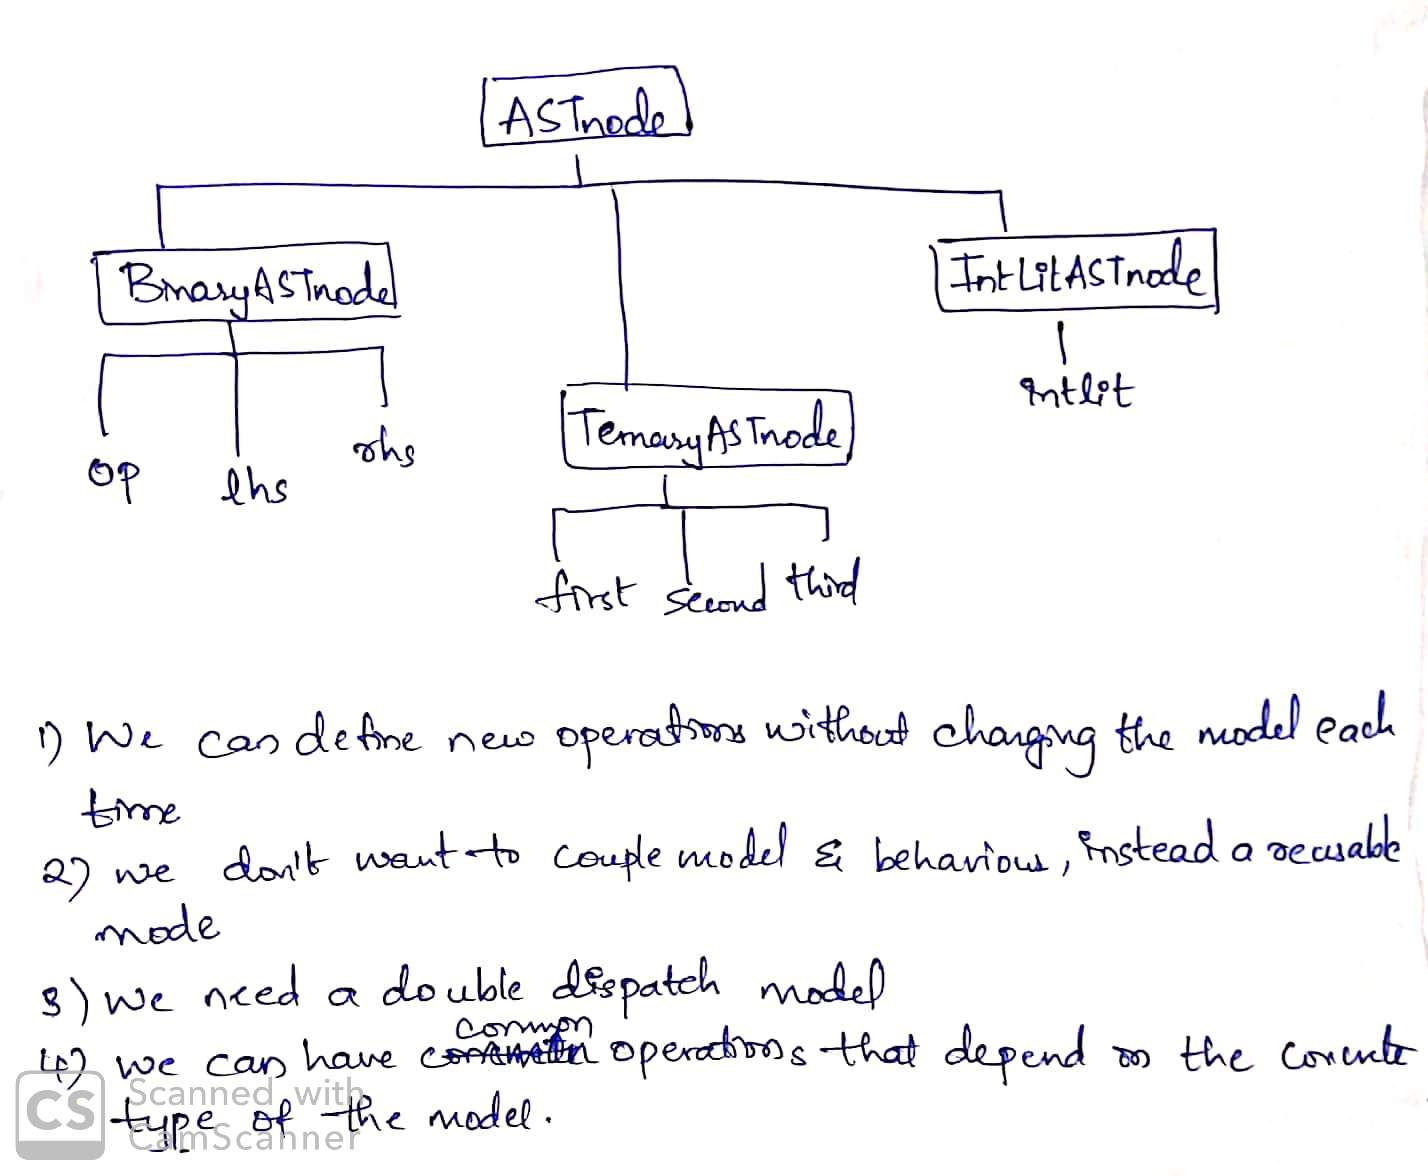 ASTnode
BinaryASTnode
IntLitASTnode
intlit
TernaryASTnode
op lhs rhs
first second third
1) We can define new operations without changing the model each
time
2) we don't want to couple model & behaviour, instead a reusable
mode
3) we need a double dispatch model
common
4) we can have operations that depend on the concrete
type of the model.
CS Scanned with
CamScanner